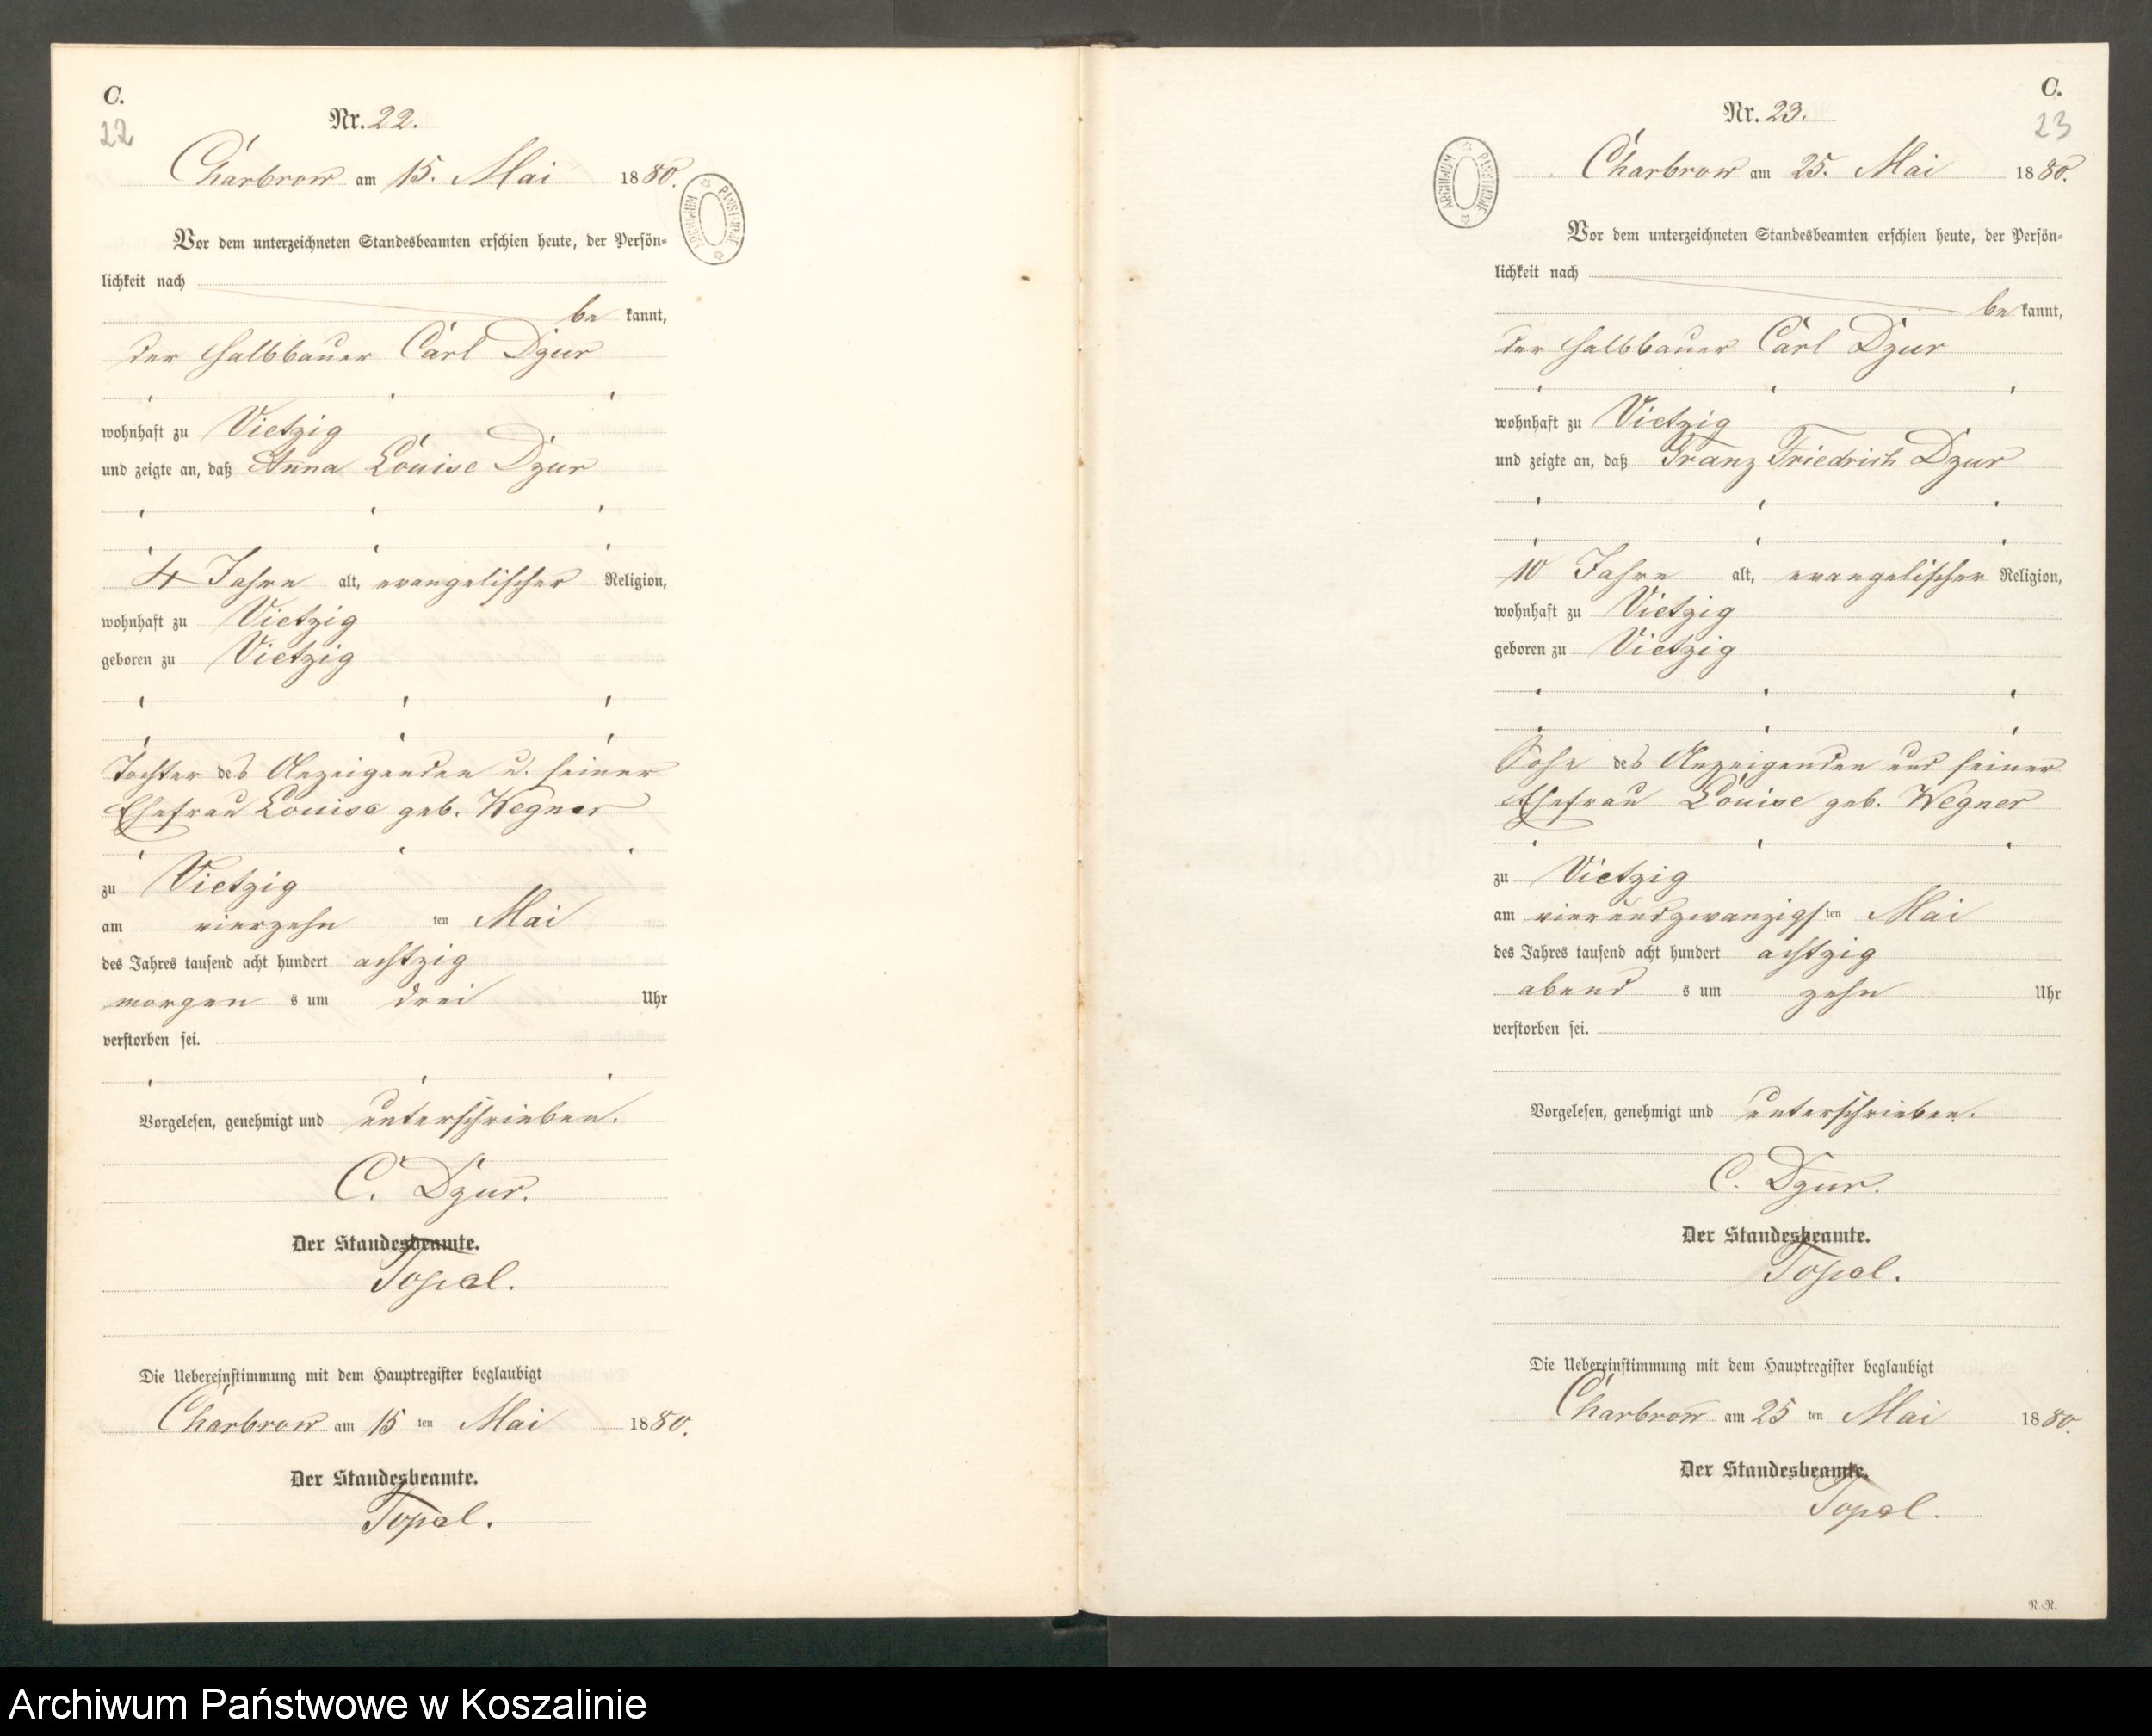 C.
22
Nr. 22.
Charbrow am 15. Mai 1880.
ARCHIWUM PAŃSTWOWE
Vor dem unterzeichneten Standesbeamten erschien heute, der Persön-
lichkeit nach
be kannt,
der Halbbauer Carl Dzur
wohnhaft zu Vietzig
und zeigte an, daß Anna Louise Dzur
4 Jahre alt, evangelischer Religion,
wohnhaft zu Vietzig
geboren zu Vietzig
Tochter des Anzeigenden u. seiner
Ehefrau Louise geb. Wegner
zu Vietzig
am vierzehn ten Mai
des Jahres tausend acht hundert achtzig
morgen s um drei Uhr
verstorben sei.
Vorgelesen, genehmigt und unterschrieben.
C. Dzur.
Der Standesbeamte.
Topel.
Die Uebereinstimmung mit dem Hauptregister beglaubigt
Charbrow am 15 ten Mai 1880.
Der Standesbeamte.
Topel.
C.
23
Nr. 23.
Charbrow am 25. Mai 1880.
ARCHIWUM PAŃSTWOWE
Vor dem unterzeichneten Standesbeamten erschien heute, der Persön-
lichkeit nach
be kannt,
der Halbbauer Carl Dzur
wohnhaft zu Vietzig
und zeigte an, daß Franz Friedrich Dzur
10 Jahre alt, evangelischer Religion,
wohnhaft zu Vietzig
geboren zu Vietzig
Sohn des Anzeigenden und seiner
Ehefrau Louise geb. Wegner
zu Vietzig
am vierundzwanzigsten Mai
des Jahres tausend acht hundert achtzig
abend s um zehn Uhr
verstorben sei.
Vorgelesen, genehmigt und unterschrieben.
C. Dzur.
Der Standesbeamte.
Topel.
Die Uebereinstimmung mit dem Hauptregister beglaubigt
Charbrow am 25 ten Mai 1880.
Der Standesbeamte.
Topel.
N.-R.
Archiwum Państwowe w Koszalinie